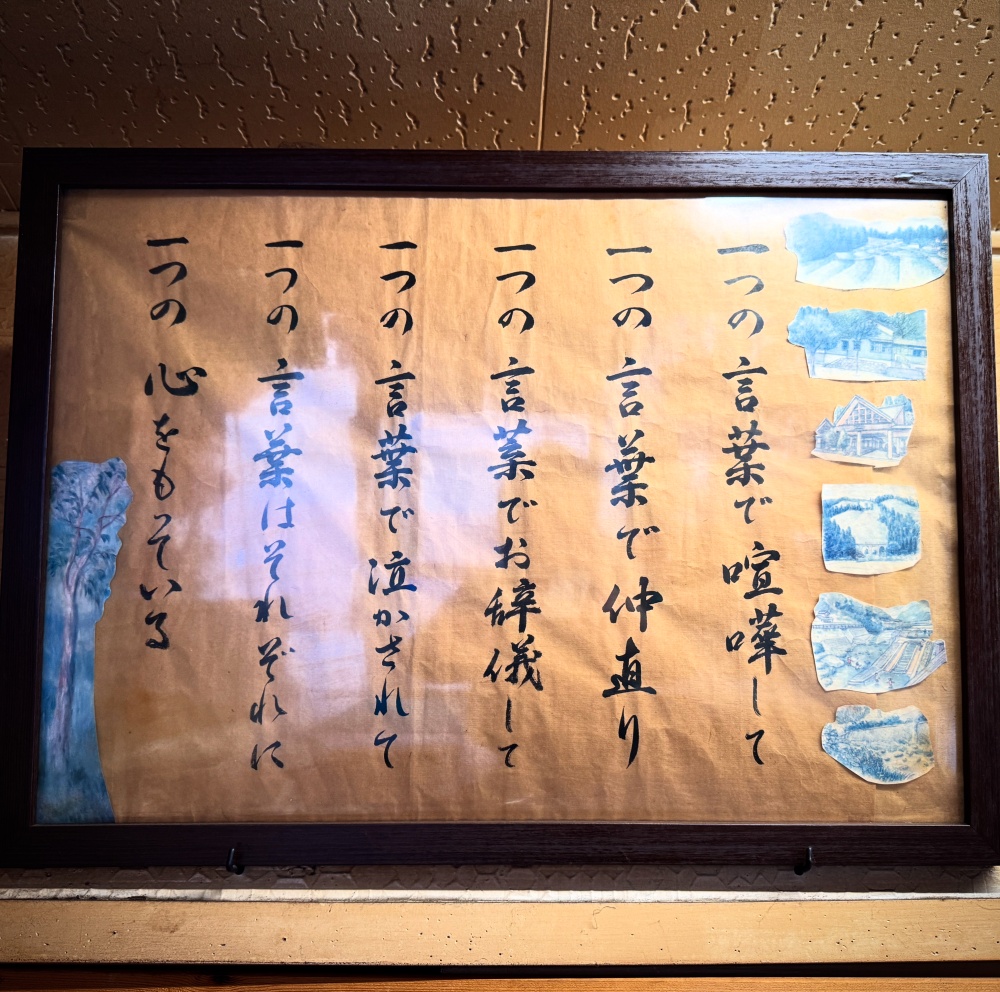 一つの言葉で喧嘩して
一つの言葉で仲直り
一つの言葉でお辞儀して
一つの言葉で泣かされて
一つの言葉はそれぞれに
一つの心をもっている